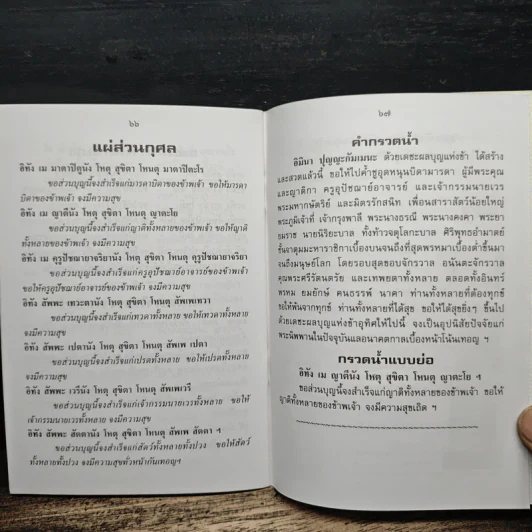 ๖๖
แผ่ส่วนกุศล
อิทัง เม มาตาปิตูนัง โหตุ สุขิตา โหนตุ มาตาปิตะโร
ขอส่วนบุญนี้จงสำเร็จแก่มารดาบิดาของข้าพเจ้า ขอให้มารดา
บิดาของข้าพเจ้า จงมีความสุข
อิทัง เม ญาตีนัง โหตุ สุขิตา โหนตุ ญาตะโย
ขอส่วนบุญนี้จงสำเร็จแก่ญาติทั้งหลายของข้าพเจ้า ขอให้ญาติ
ทั้งหลายของข้าพเจ้า จงมีความสุข
อิทัง เม คุรูปัชฌายาจริยานัง โหตุ สุขิตา โหนตุ คุรูปัชฌายาจริยา
ขอส่วนบุญนี้จงสำเร็จแก่ครูอุปัชฌาย์อาจารย์ของข้าพเจ้า
ขอให้ครูอุปัชฌาย์อาจารย์ของข้าพเจ้า จงมีความสุข
อิทัง สัพพะ เทวะตานัง โหตุ สุขิตา โหนตุ สัพเพเทวา
ขอส่วนบุญนี้จงสำเร็จแก่เทวดาทั้งหลาย ขอให้เทวดาทั้งหลาย
จงมีความสุข
อิทัง สัพพะ เปตานัง โหตุ สุขิตา โหนตุ สัพเพ เปตา
ขอส่วนบุญนี้จงสำเร็จแก่เปรตทั้งหลาย ขอให้เปรตทั้งหลาย
จงมีความสุข
อิทัง สัพพะ เวรีนัง โหตุ สุขิตา โหนตุ สัพเพเวรี
ขอส่วนบุญนี้จงสำเร็จแก่เจ้ากรรมนายเวรทั้งหลาย ขอให้
เจ้ากรรมนายเวรทั้งหลาย จงมีความสุข
อิทัง สัพพะ สัตตานัง โหตุ สุขิตา โหนตุ สัพเพ สัตตา ฯ
ขอส่วนบุญนี้จงสำเร็จแก่สัตว์ทั้งหลายทั้งปวง ขอให้สัตว์
ทั้งหลายทั้งปวง จงมีความสุขทั่วหน้ากันเทอญฯ
๖๗
คำกรวดน้ำ
อิมินา ปุญญะกัมเมนะ ด้วยเดชะผลบุญแห่งข้า ได้สร้าง
และสวดแล้วนี้ ขอให้ไปค้ำชูอุดหนุนบิดามารดา ผู้มีพระคุณ
และญาติกา ครูอุปัชฌาย์อาจารย์ และเจ้ากรรมนายเวร
พระมหากษัตริย์ และมิตรรักสนิท เพื่อนสาราสัตว์น้อยใหญ่
พระภูมิเจ้าที่ เจ้ากรุงพาลี พระนางธรณี พระนางคงคา พระยา
ยมราช นายนิริยะบาล ทั้งท้าวจตุโลกะบาล ศิริพุทธอำมาตย์
ชั้นจาตุมมะหาราชิกาเบื้องบนจนถึงที่สุดพรหมาเบื้องต่ำขึ้นมา
จนถึงมนุษย์โลก โดยรอบสุดขอบจักรวาล อนันตะจักรวาล
คุณพระศรีรัตนตรัย และเทพยดาทั้งหลาย ตลอดทั้งอินทร์
พรหม ยมยักษ์ คนธรรพ์ นาคา ท่านทั้งหลายที่ต้องทุกข์
ขอให้พ้นจากทุกข์ ท่านทั้งหลายที่ได้สุข ขอให้ได้สุขยิ่งๆ ขึ้นไป
ด้วยเดชะผลบุญแห่งข้าอุทิศให้ไปนี้ จงเป็นอุปนิสัยปัจจัยแก่
พระนิพพานในปัจจุบันและอนาคตกาลเบื้องหน้าโน้นเทอญ ฯ
กรวดน้ำแบบย่อ
อิทัง เม ญาตีนัง โหตุ สุขิตา โหนตุ ญาตะโย ฯ
ขอส่วนบุญนี้จงสำเร็จแก่ญาติทั้งหลายของข้าพเจ้า ขอให้
ญาติทั้งหลายของข้าพเจ้า จงมีความสุขเถิด ฯ